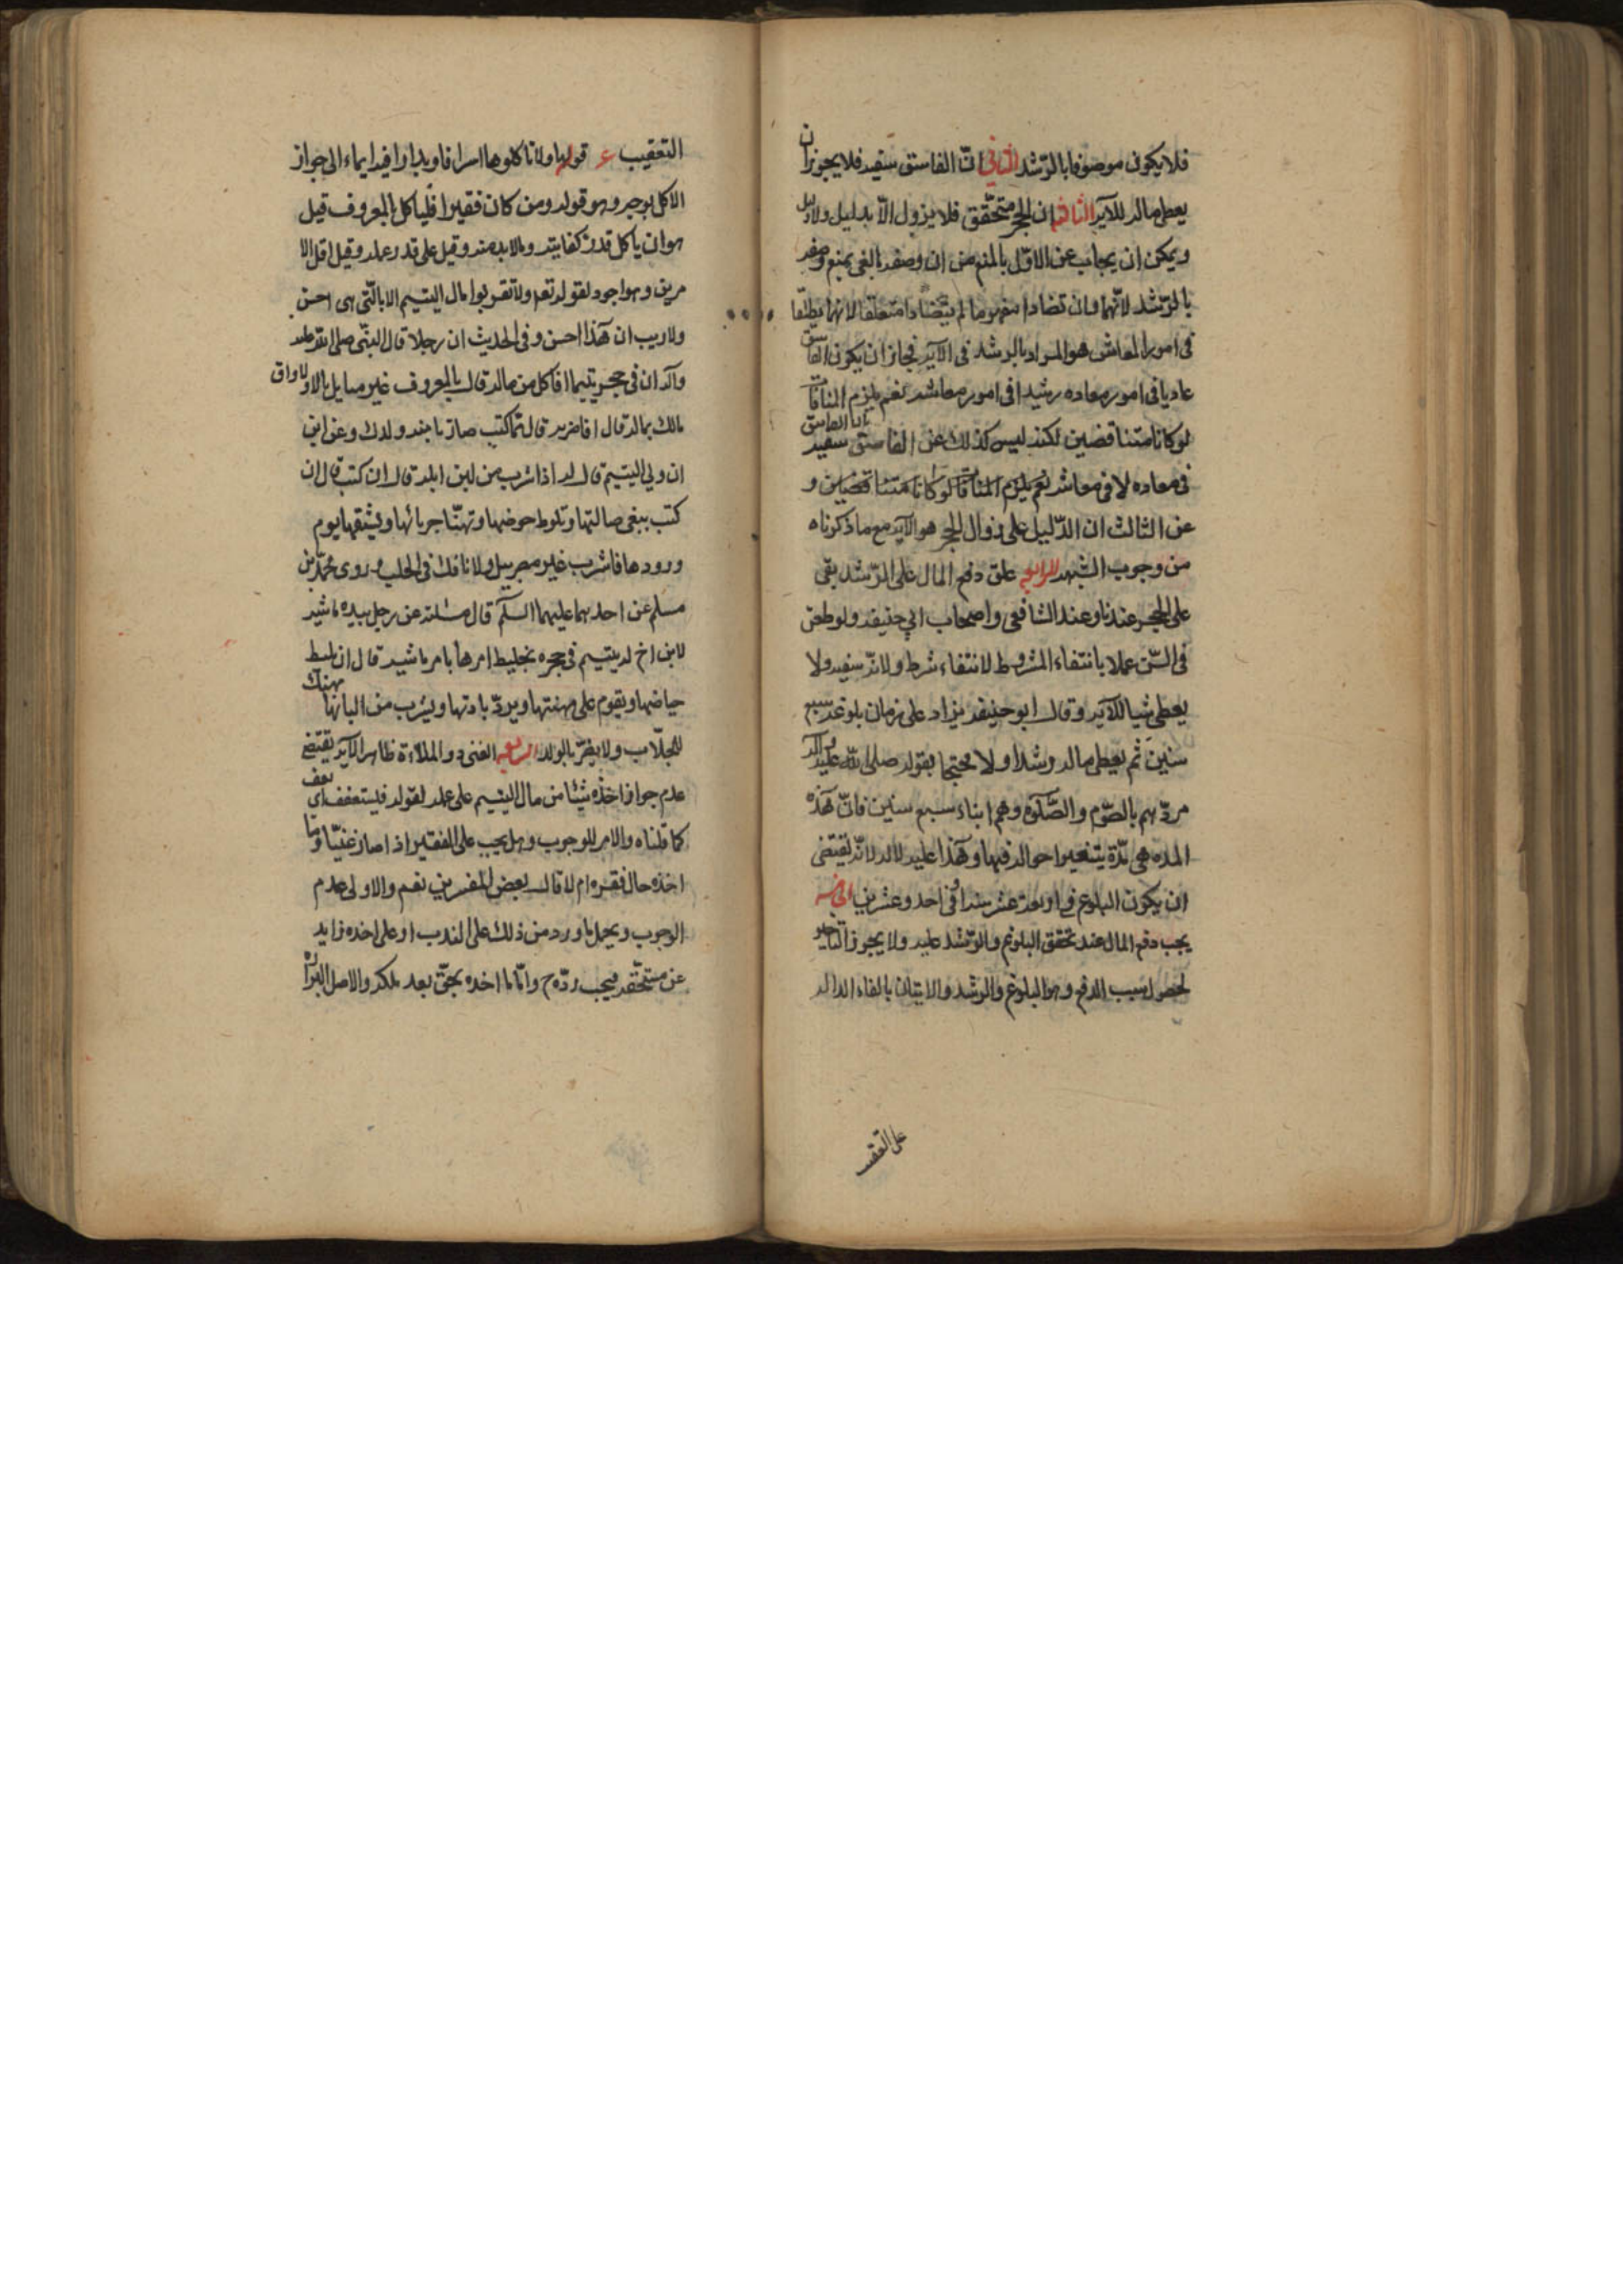 فلا يكون موصوفا بالرّشد الثاني انّ الفاسق سفيه فلا يجوز ان
يعطى ماله للآية الثالث ان الحجر متحقّق فلا يزول الّا بدليل ولا دليل
ويمكن ان يجاب عن الاوّل بالمنع من ان وصفه بالغى يمنع وصفه
بالرّشد لانّهما وان تضادا مفهوما لم يتضادا متعلقا لانهما
فى امور المعاش هو المراد بالرشد فى الآية فجاز ان يكون الفاسق
غاويا فى امور معاده رشيدا فى امور معاشه نعم يلزم المنافات
لو كانا متناقضين لكنه ليس كذلك عن الفاسق سفيه
فى معاده لا فى معاشه نعم يلزم المنافات لو كانا متناقضين و
عن الثالث ان الدّليل على زوال الحجر هو الآية مع ما ذكرناه
من وجوب الشهد الرابع علق دفع المال على الرّشد بقى
على الحجر عندنا وعند الشافعى واصحاب ابي حنيفه ولو طعن
فى السّن عملا بانتفاء المشروط لانتفاء شرطه ولانّه سفيه ولا
يعطى شيا للآية وقال ابو حنيفه يزاد على زمان بلوغه سبع
سنين ثم يعطى ماله رشدا ولا محتجا بقوله صلى اللّه عليه وآله
مروّهم بالصّوم والصّلوة وهم ابناء سبع سنين فانّ هذه
المده هى مدّة يتغير احواله فيها وهذا عليه لا له لانّه يقتضى
ان يكون البلوغ فى اربعة عشر سنة او فى احد وعشرين الخامسه
يجب دفع المال عند تحقق البلوغ والرّشد عليه ولا يجوز التاخير
لحصول سبب الدفع وهو البلوغ والرشد والاتيان بالفاء الداله
على التعقيب
التعقيب ع قوله ولا تاكلوها اسرافا وبدارا فيه ايماء الى جواز
الاكل بوجه وهو قوله ومن كان فقيرا فلياكل بالمعروف قيل
هو ان ياكل قدر كفايته وما لا بد منه وقيل على قدر عمله وقيل اقل الا
مرين وهو اجود لقوله تعه ولا تقربوا مال اليتيم الا بالّتى هى احسن
ولا ريب ان هذا احسن وفى الحديث ان رجلا قال للنبّى صلى اللّه عليه
وآله ان فى حجرى يتيما افاكل من ماله قال بالمعروف غير متاثل مالا ولا واق
مالك بماله قال افاضربه قال ممّا كنت ضاربا منه ولدك وعن ابن
ان ولي اليتيم قال له اذا شرب من لبن ابله قال ان كنت قال ان
كنت تبغى ضالتها وتلوط حوضها وتهنّا جربائها وتسقيها يوم
ورودها فاشرب غير مضر بنسل ولا ناهك فى الحلب وروى محمّد بن
مسلم عن احدهما عليهما السلم قال سئلته عن رجل بيده ماشيه
لابن اخ له يتيم فى حجره يخليط امرها بامر ماشيته قال ان يليط
حياضها ويقوم على مهنتها ويردّ نادتها ويشرب من البانها
للحلّاب ولا يضرّ بالولد الرابعه الغنى ذو الملاءة ظاهر الآية يقتضى
عدم جواز اخذه شيئا من مال اليتيم على عمله لقوله فليستعفف اى
كما قلناه والامر للوجوب وهل يجب على الفقير اذا صار غنيّا ردّ ما
اخذه حال فقره ام لا قال بعض المفسرين نعم والاولى عدم
الوجوب ويحمل ما ورد من ذلك على الندب او على اخذه زايد
عن مستحّقه فيجب ردّه ح وامّا ما اخذه بحقّ بعد ملكه والاصل البرائة